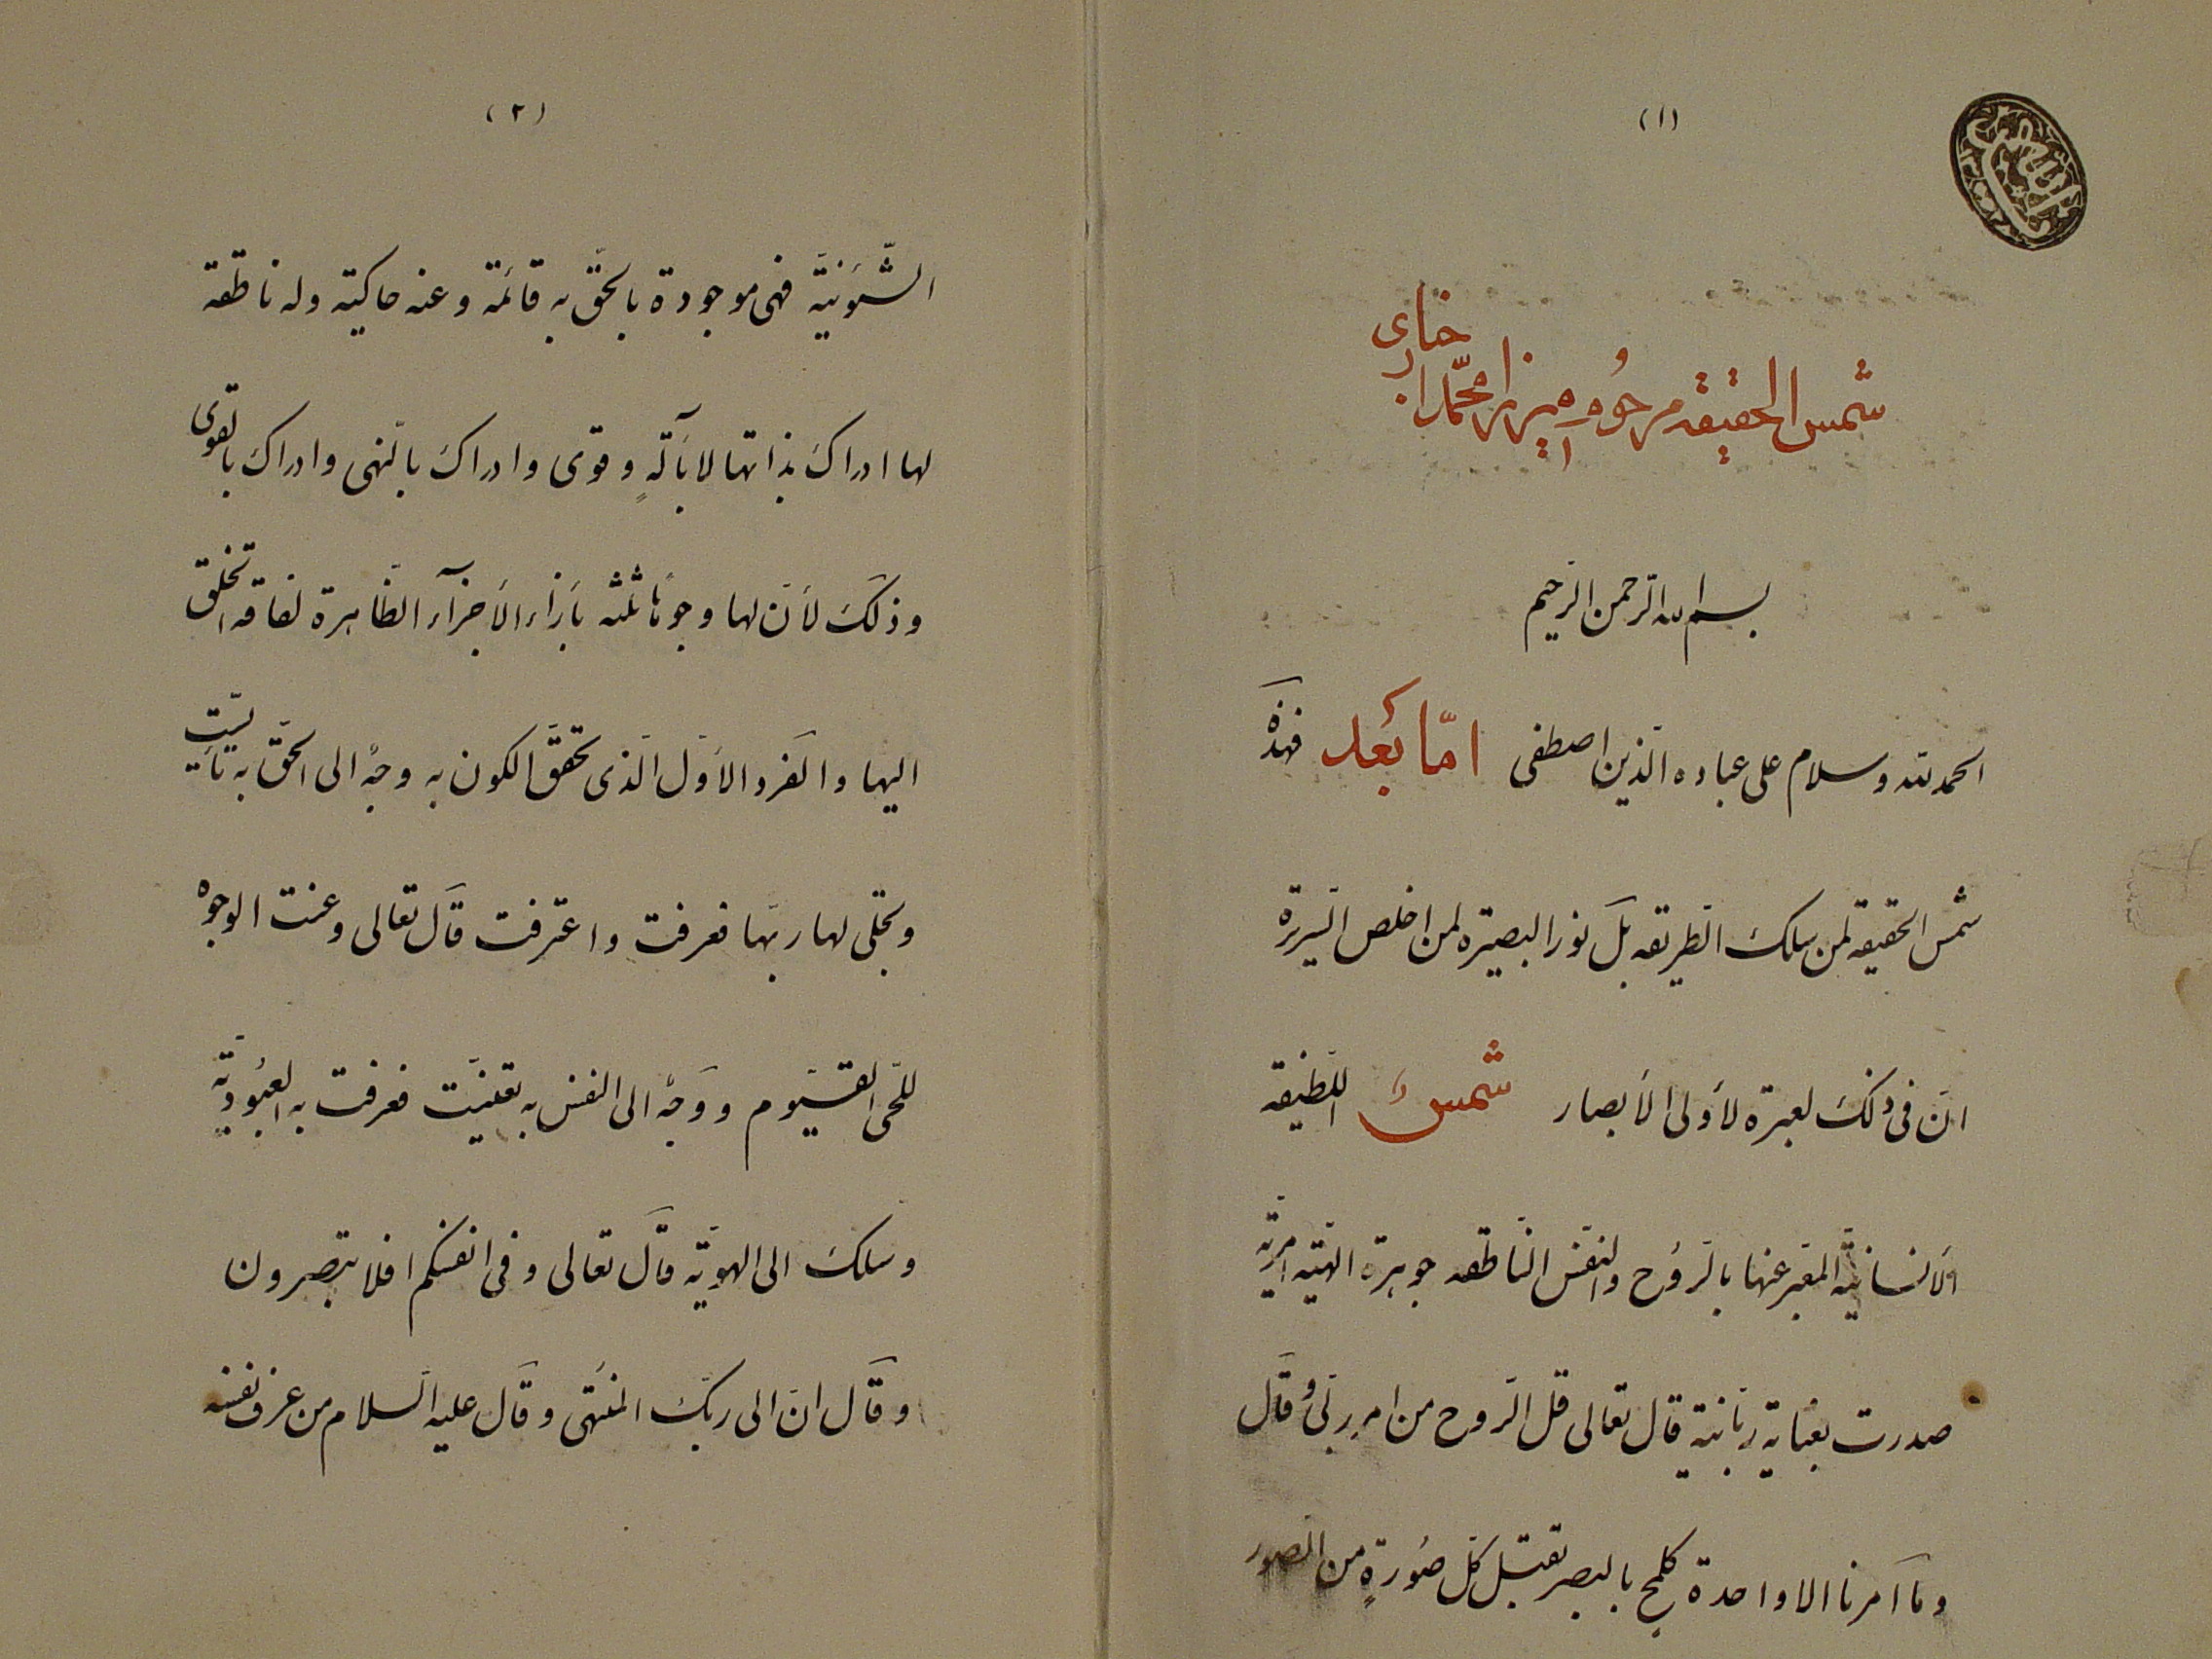 (١)
شمس الحقیقه مرحوم میرزا محمد اخباری
بسم الله الرّحمن الرّحیم
الحمد لله وسلام علی عباده الّذین اصطفی امّا بُعد فهذه
شمس الحقیقه لمن سلک الطّریقه بل نور البصیرة لمن اخلص السّریرة
انّ فی ذلک لعبرة لأولی الأبصار شمسٌ اللّطیفه
الأنسانیّه المعبّر عنها بالرّوح والنّفس النّاطقه جوهرة الهیّه امریّه
صدرت بعنایة ربّانیّة قال تعالی قل الرّوح من امر ربّی وقال
وما امرنا الا واحدة کلمح بالبصر تقبل کلّ صُورةٍ من الصّور
(٢)
الشّؤنیّة فهی موجودة بالحقّ به قائمة وعنه حاکیته وله ناطقه
لها ادراک بذاتها لا بآلةٍ وقوی وادراک بالنّهی وادراک بالقوی
وذلک لأنّ لها وجوهًا ثلثه بأزاء الأجزآء الظّاهرة لفاقه الخلق
الیها والفرد الأوّل الّذی تحقّق الکون به وجهٌ الی الحقّ به تأیّست
وتجلّی لها ربّها فعرفت واعترفت قال تعالی وعنت الوجوه
للحّی القیّوم ووجهٌ الی النفس به تعیّنت فعرفت به العبُودیّة
وسلک الی الهویّة قال تعالی وفی انفسکم افلا تبصرون
وقال انّ الی ربّک المنتهی وقال علیه السّلام من عرف نفسه